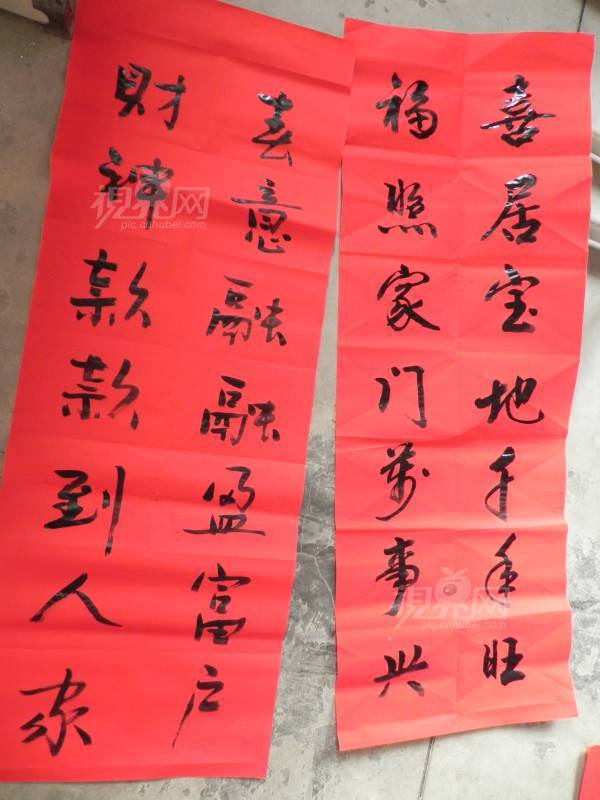 喜居宝地千年旺
福照家门万事兴
春意融融盈富户
财神款款到人家
視界网
pic.cnhubei.com
視界网
pic.cnhubei.com